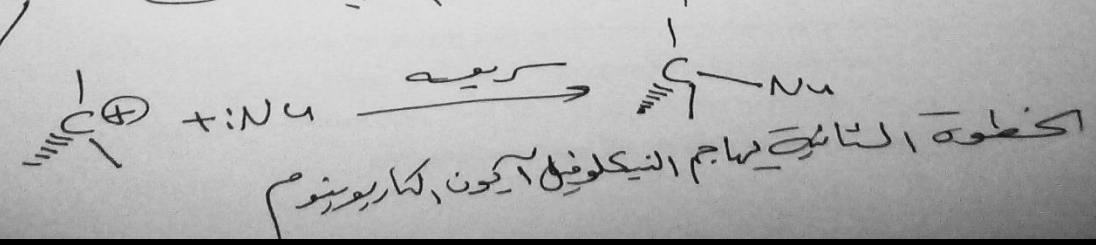 C⊕ + :Nu سريعه → C—Nu
الخطوة الثانية يهاجم النيكلوفيل آيون الكاربونيوم